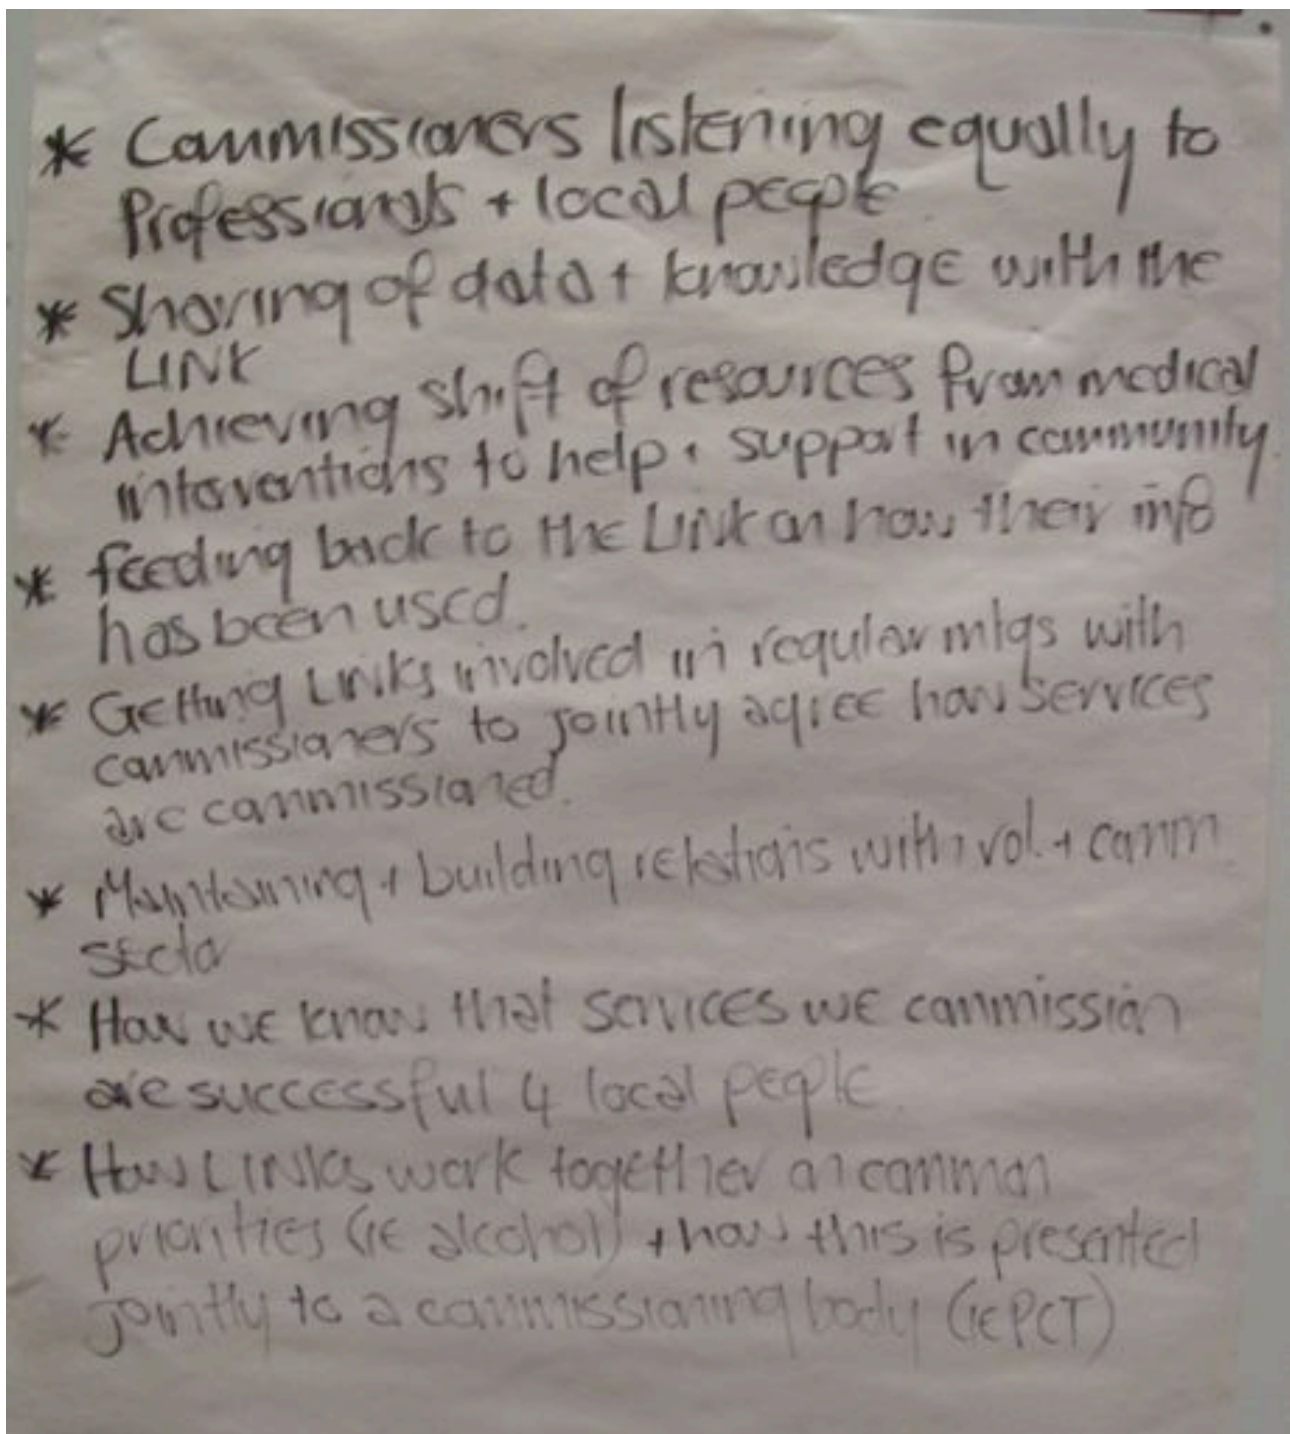 * Commissioners listening equally to
Professionals + local people.
* Sharing of data + knowledge with the
LINK
* Achieving shift of resources from medical
interventions to help + support in community.
* feeding back to the LINK on how their info
has been used.
* Getting LINKs involved in regular mtgs with
commissioners to jointly agree how services
are commissioned.
* Maintaining + building relations with vol. + comm.
sector
* How we know that services we commission
are successful 4 local people.
* How LINKs work together on common
priorities (ie alcohol) + how this is presented
jointly to a commissioning body (ie PCT)